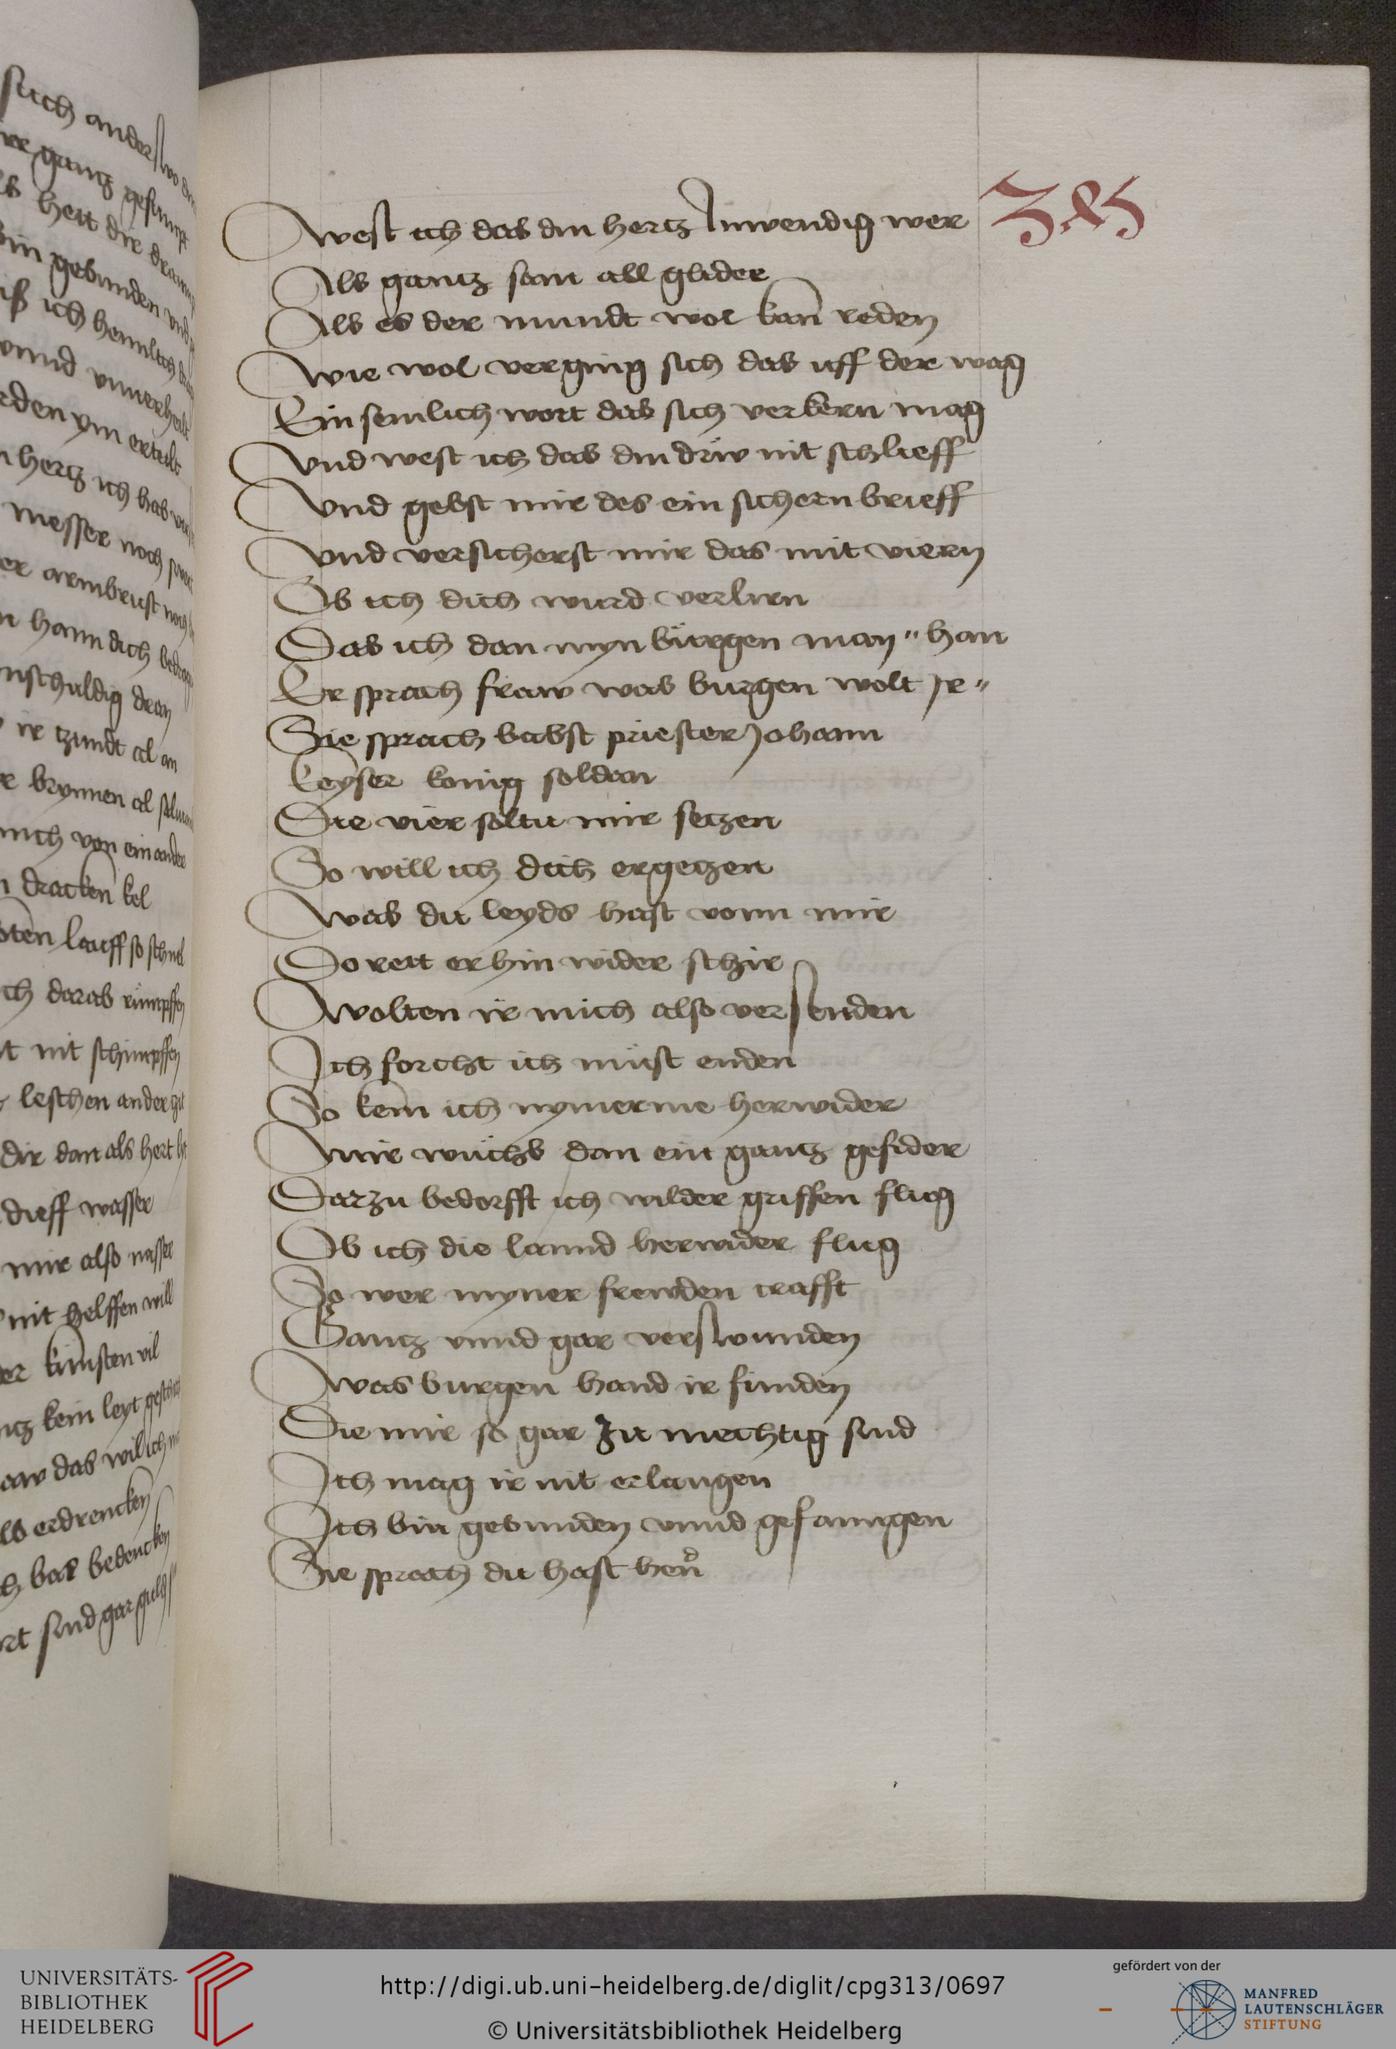 345
West ich das din hertz Inwendig wer
Als gantz sam all glider
Als es der mundt wol kan̄ reden
Wie wol verging sich das uff der wag
Ein semlich wort das sich verkern mag
Vnd west ich das din drüw nit schlieff
Vnd gebst mir des ein sichern brieff
Vnd versicherst mir das mit viern
Ob ich dich wurd verliern
Das ich dan myn bürgen man " han
Er sprach fraw was burgen wolt Ir "
Sie sprach babst priester Johann
keyser konig soldan
Die vier soltu mir setzen
So will ich dich ergetzen
Was du leyds hast vonn mir
Do rett er hin wider schir
Wolten ir mich also versenden
Ich forcht ich müst enden
So kem ich nymerme herwider
Mir wüchs dan ein gantz gefider
Darzu bedorfft ich wilder griffen flug
Ob ich die lannd herwider flug
So wer myner frewden crafft
Gantz vnnd gar verswunden
Was burgen hand ir funden
Die mir so gar zu mechtig sind
Ich mag ir nit erlangen
Ich bin gebunden vnnd gefanngen
Sie sprach du hast
such anders wo
gantz gestimpt
hett dir
gebunden vnd
ich hennlich
vnnd
ym erteilt
hertz ich hab
messer noch
armbrust noch
hann dich
vnschuldig dran
ir tzundt al an
brynnen al
mich von ein ander
dracken kel
lauff so schnel
ich darab rümpffen
nit schimpffen
leschen ander
dir dan als hert
dieff wasser
mir also nasser
nit helffen will
künsten vil
kein leyt
das wil ich
erdrencken
bas bedencken
sind gar
UNIVERSITÄTS-
BIBLIOTHEK
HEIDELBERG
http://digi.ub.uni-heidelberg.de/diglit/cpg313/0697
© Universitätsbibliothek Heidelberg
gefördert von der
MANFRED
LAUTENSCHLÄGER
STIFTUNG